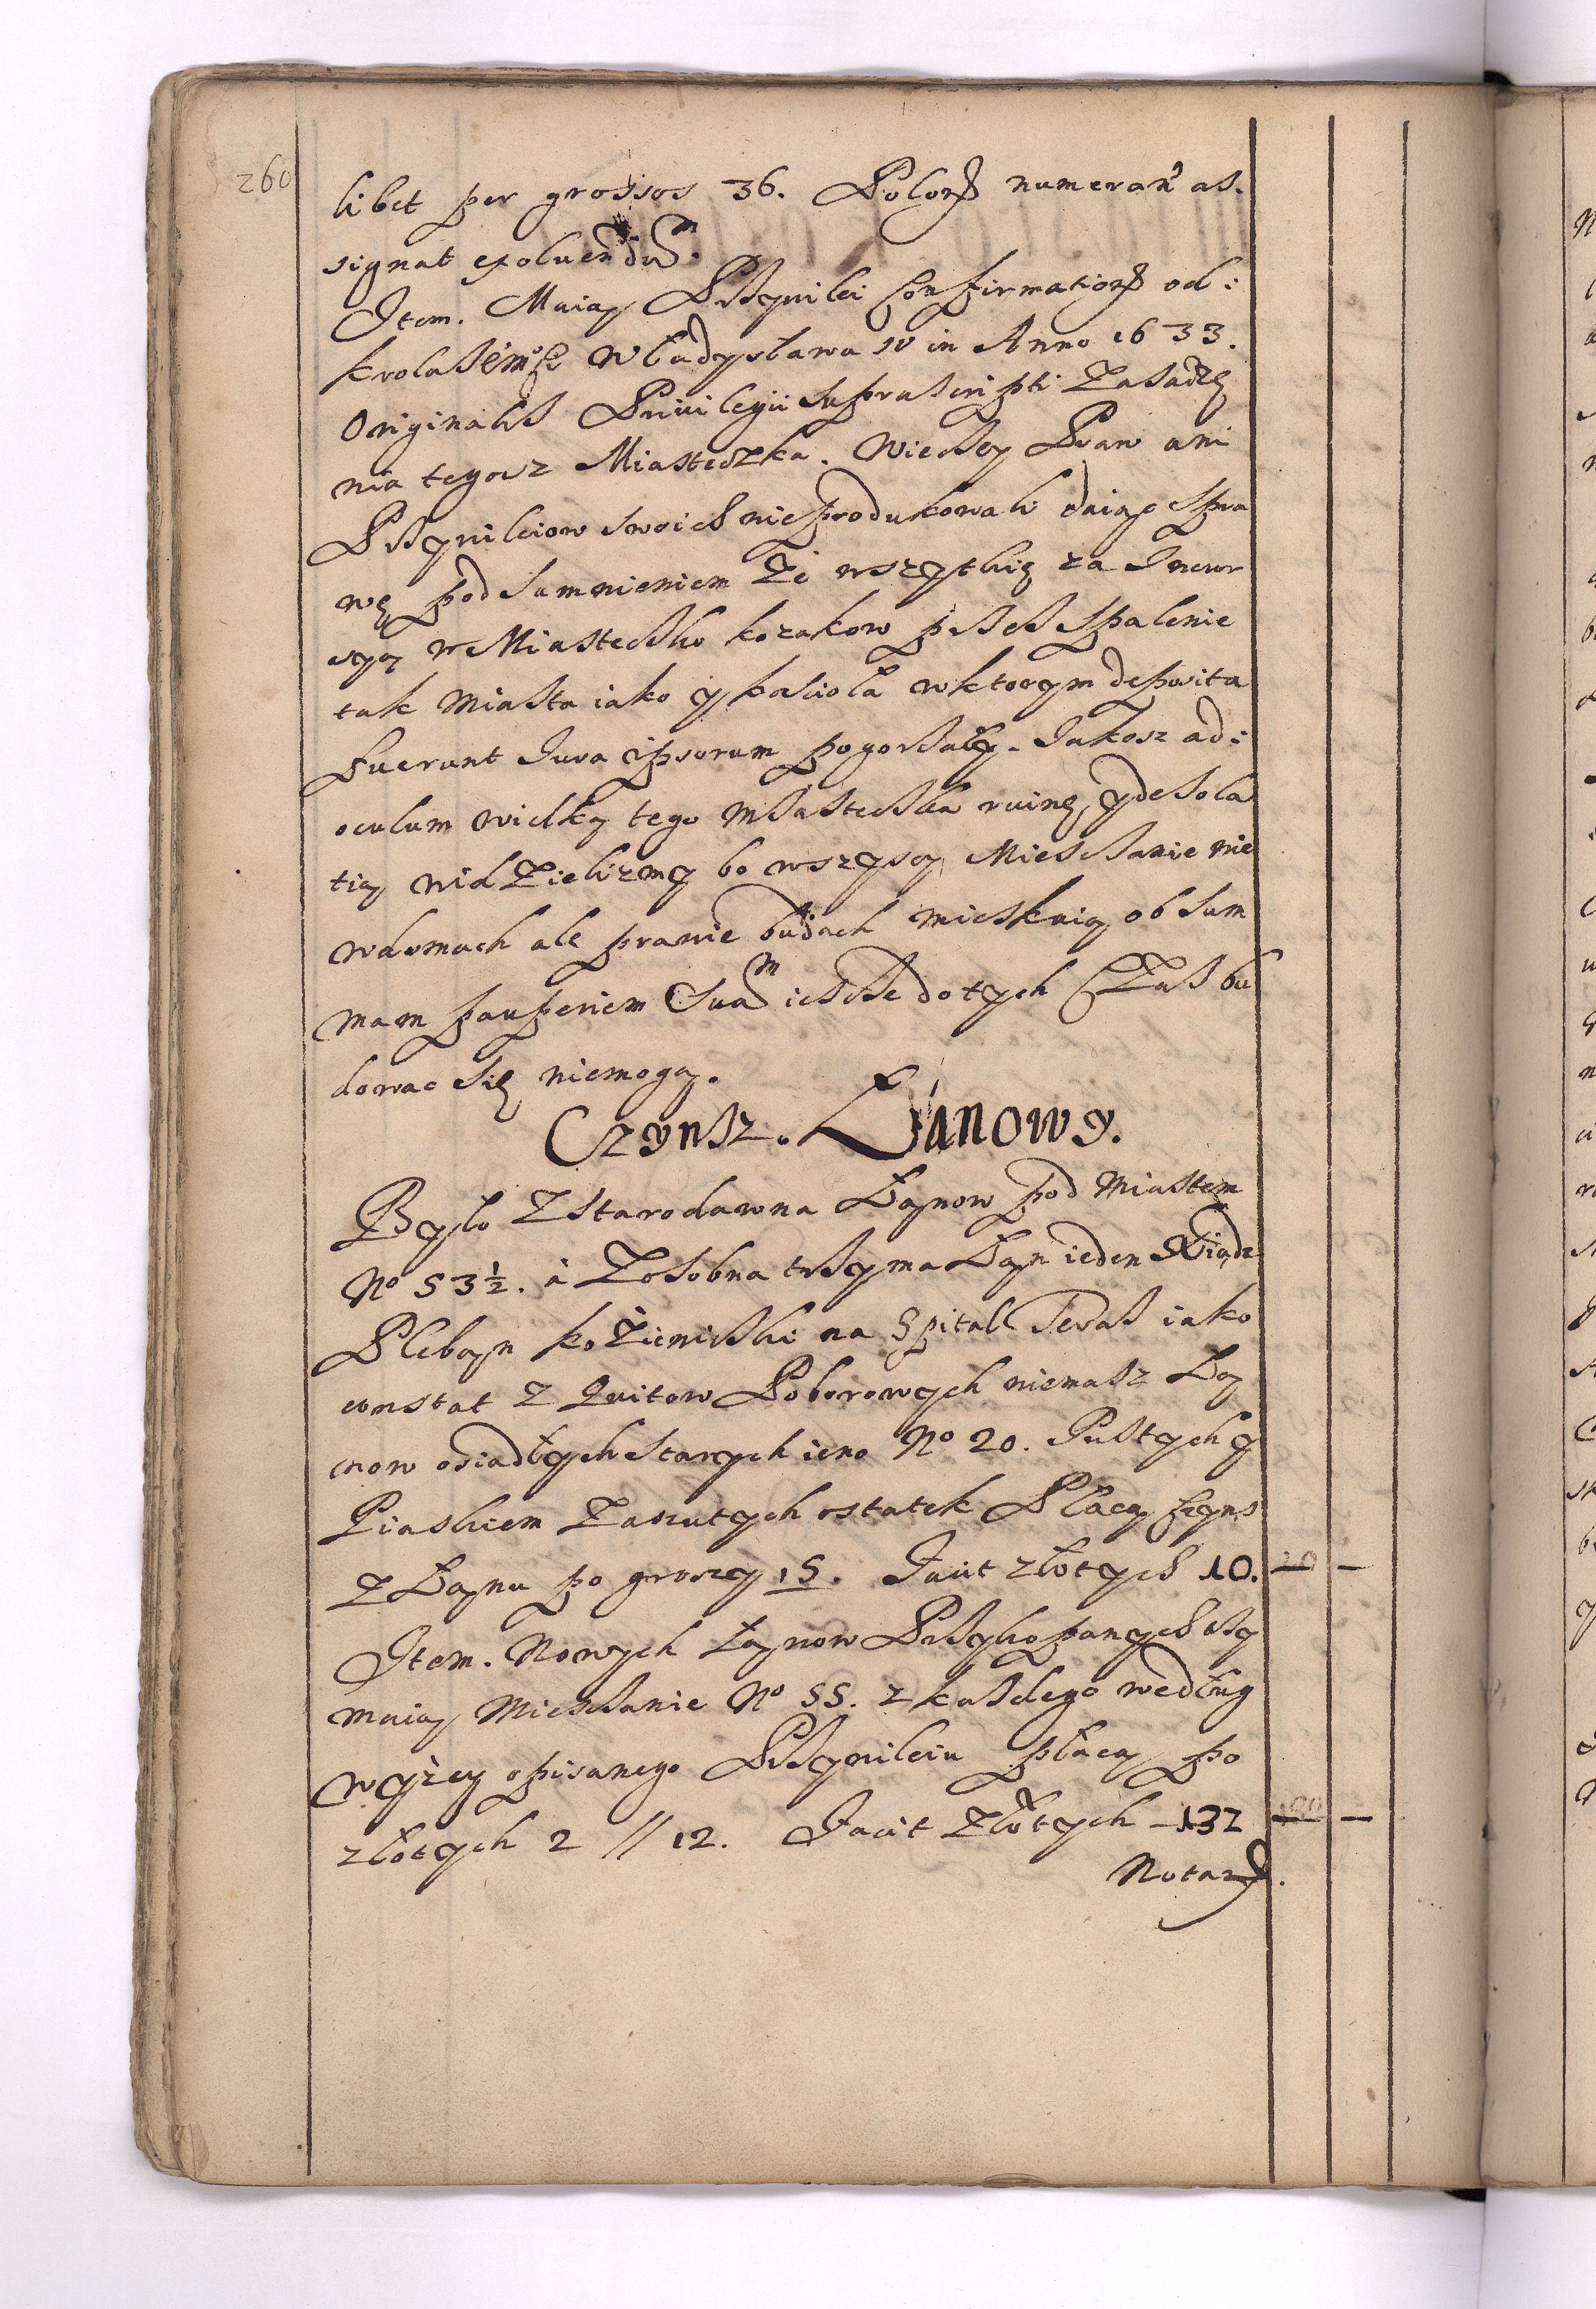 260
libet per grossos 36. Polon numeran as.
signat exoluendam.
Item. Maią Przywilei Confirmation od:
krola Jėmści Władysława IV in Anno 1633.
Originalis Priuilegii suprascripti Zasadze
nia tegosz Miasteczka. Wiecey Praw ani
Przywileiow swoich nieprodukowali daiąc spra
wę pod sumnieniem Ze wszytkie za Incur
syą w Miasteczko kozakow przez spalenie
tak Miasta iako y kosciołа wktorym deposita
fuerunt Iura ipsorum pogorzały. Jakosz ad:
oculum wielką tego Miasteczka ruinę, y desola
tią widzielizmy bo wszyscy Mieszczanie nie
wdomach ale prawie budach mieszkaią ob sum
mam pauperiem suam ieszcze dotych Czas bu
dowac się niemogą.
Czynsz. Łanowy.
Było Zstarodawna Łanow pod Miastem
No 53½. á Zosobna trzyma Łan ieden Xiądz
Pleban koZienicki na Szpital Teraz iako
constat Z Quitow Poborowych niemasz Ła
now osiadłych starych ieno No 20. Pustych y
Piaskiem Zasutych ostatek Płacą Czyns
Z Łanu po groszy 15. Facit złotych 10. 10 —
Item. Nowych Łanow Przykopanych
maią Mieszczanie No 55. z kazdego według
wyżey opisanego Przywileiu płacą po
złotych 2 // 12. Facit Złotych — 132 —
Notan.